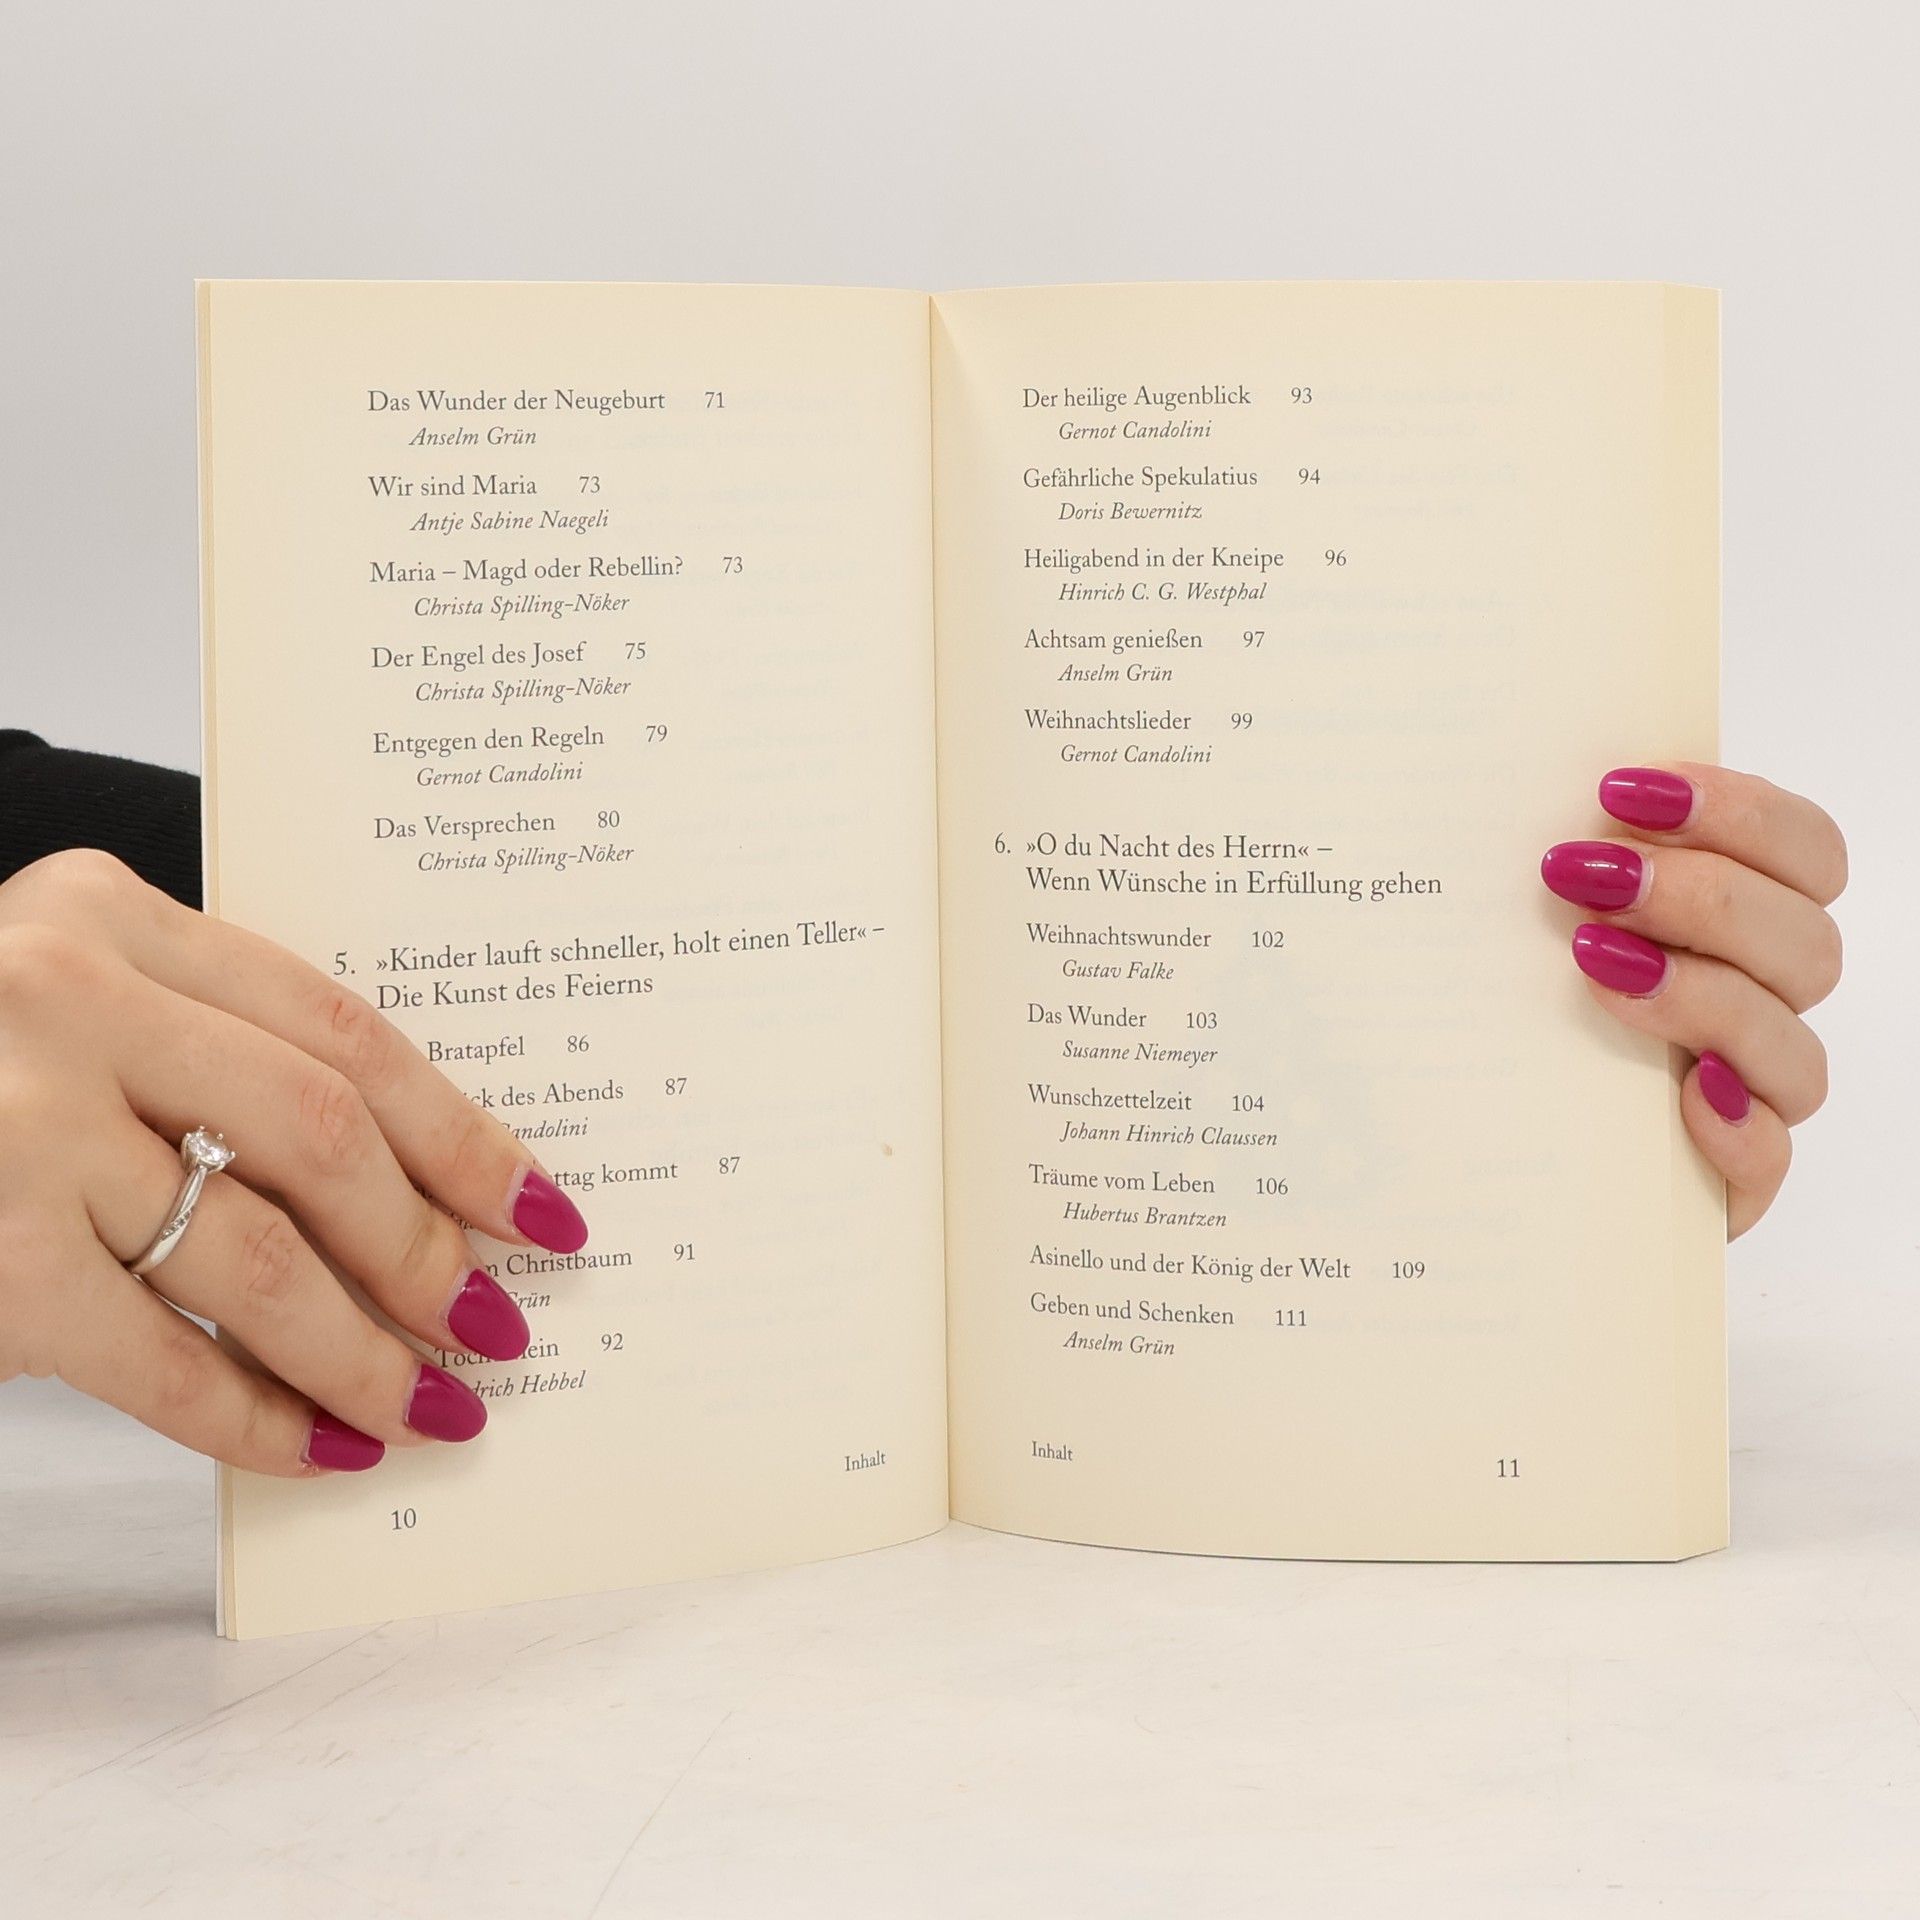 Das Wunder der Neugeburt 71
Anselm Grün
Wir sind Maria 73
Antje Sabine Naegeli
Maria – Magd oder Rebellin? 73
Christa Spilling-Nöker
Der Engel des Josef 75
Christa Spilling-Nöker
Entgegen den Regeln 79
Gernot Candolini
Das Versprechen 80
Christa Spilling-Nöker
5. »Kinder lauft schneller, holt einen Teller« –
Die Kunst des Feierns
Bratapfel 86
des Abends 87
Candolini
kommt 87
Christbaum 91
Grün
92
Hebbel
Inhalt
10
Der heilige Augenblick 93
Gernot Candolini
Gefährliche Spekulatius 94
Doris Bewernitz
Heiligabend in der Kneipe 96
Hinrich C. G. Westphal
Achtsam genießen 97
Anselm Grün
Weihnachtslieder 99
Gernot Candolini
6. »O du Nacht des Herrn« –
Wenn Wünsche in Erfüllung gehen
Weihnachtswunder 102
Gustav Falke
Das Wunder 103
Susanne Niemeyer
Wunschzettelzeit 104
Johann Hinrich Claussen
Träume vom Leben 106
Hubertus Brantzen
Asinello und der König der Welt 109
Geben und Schenken 111
Anselm Grün
Inhalt
11